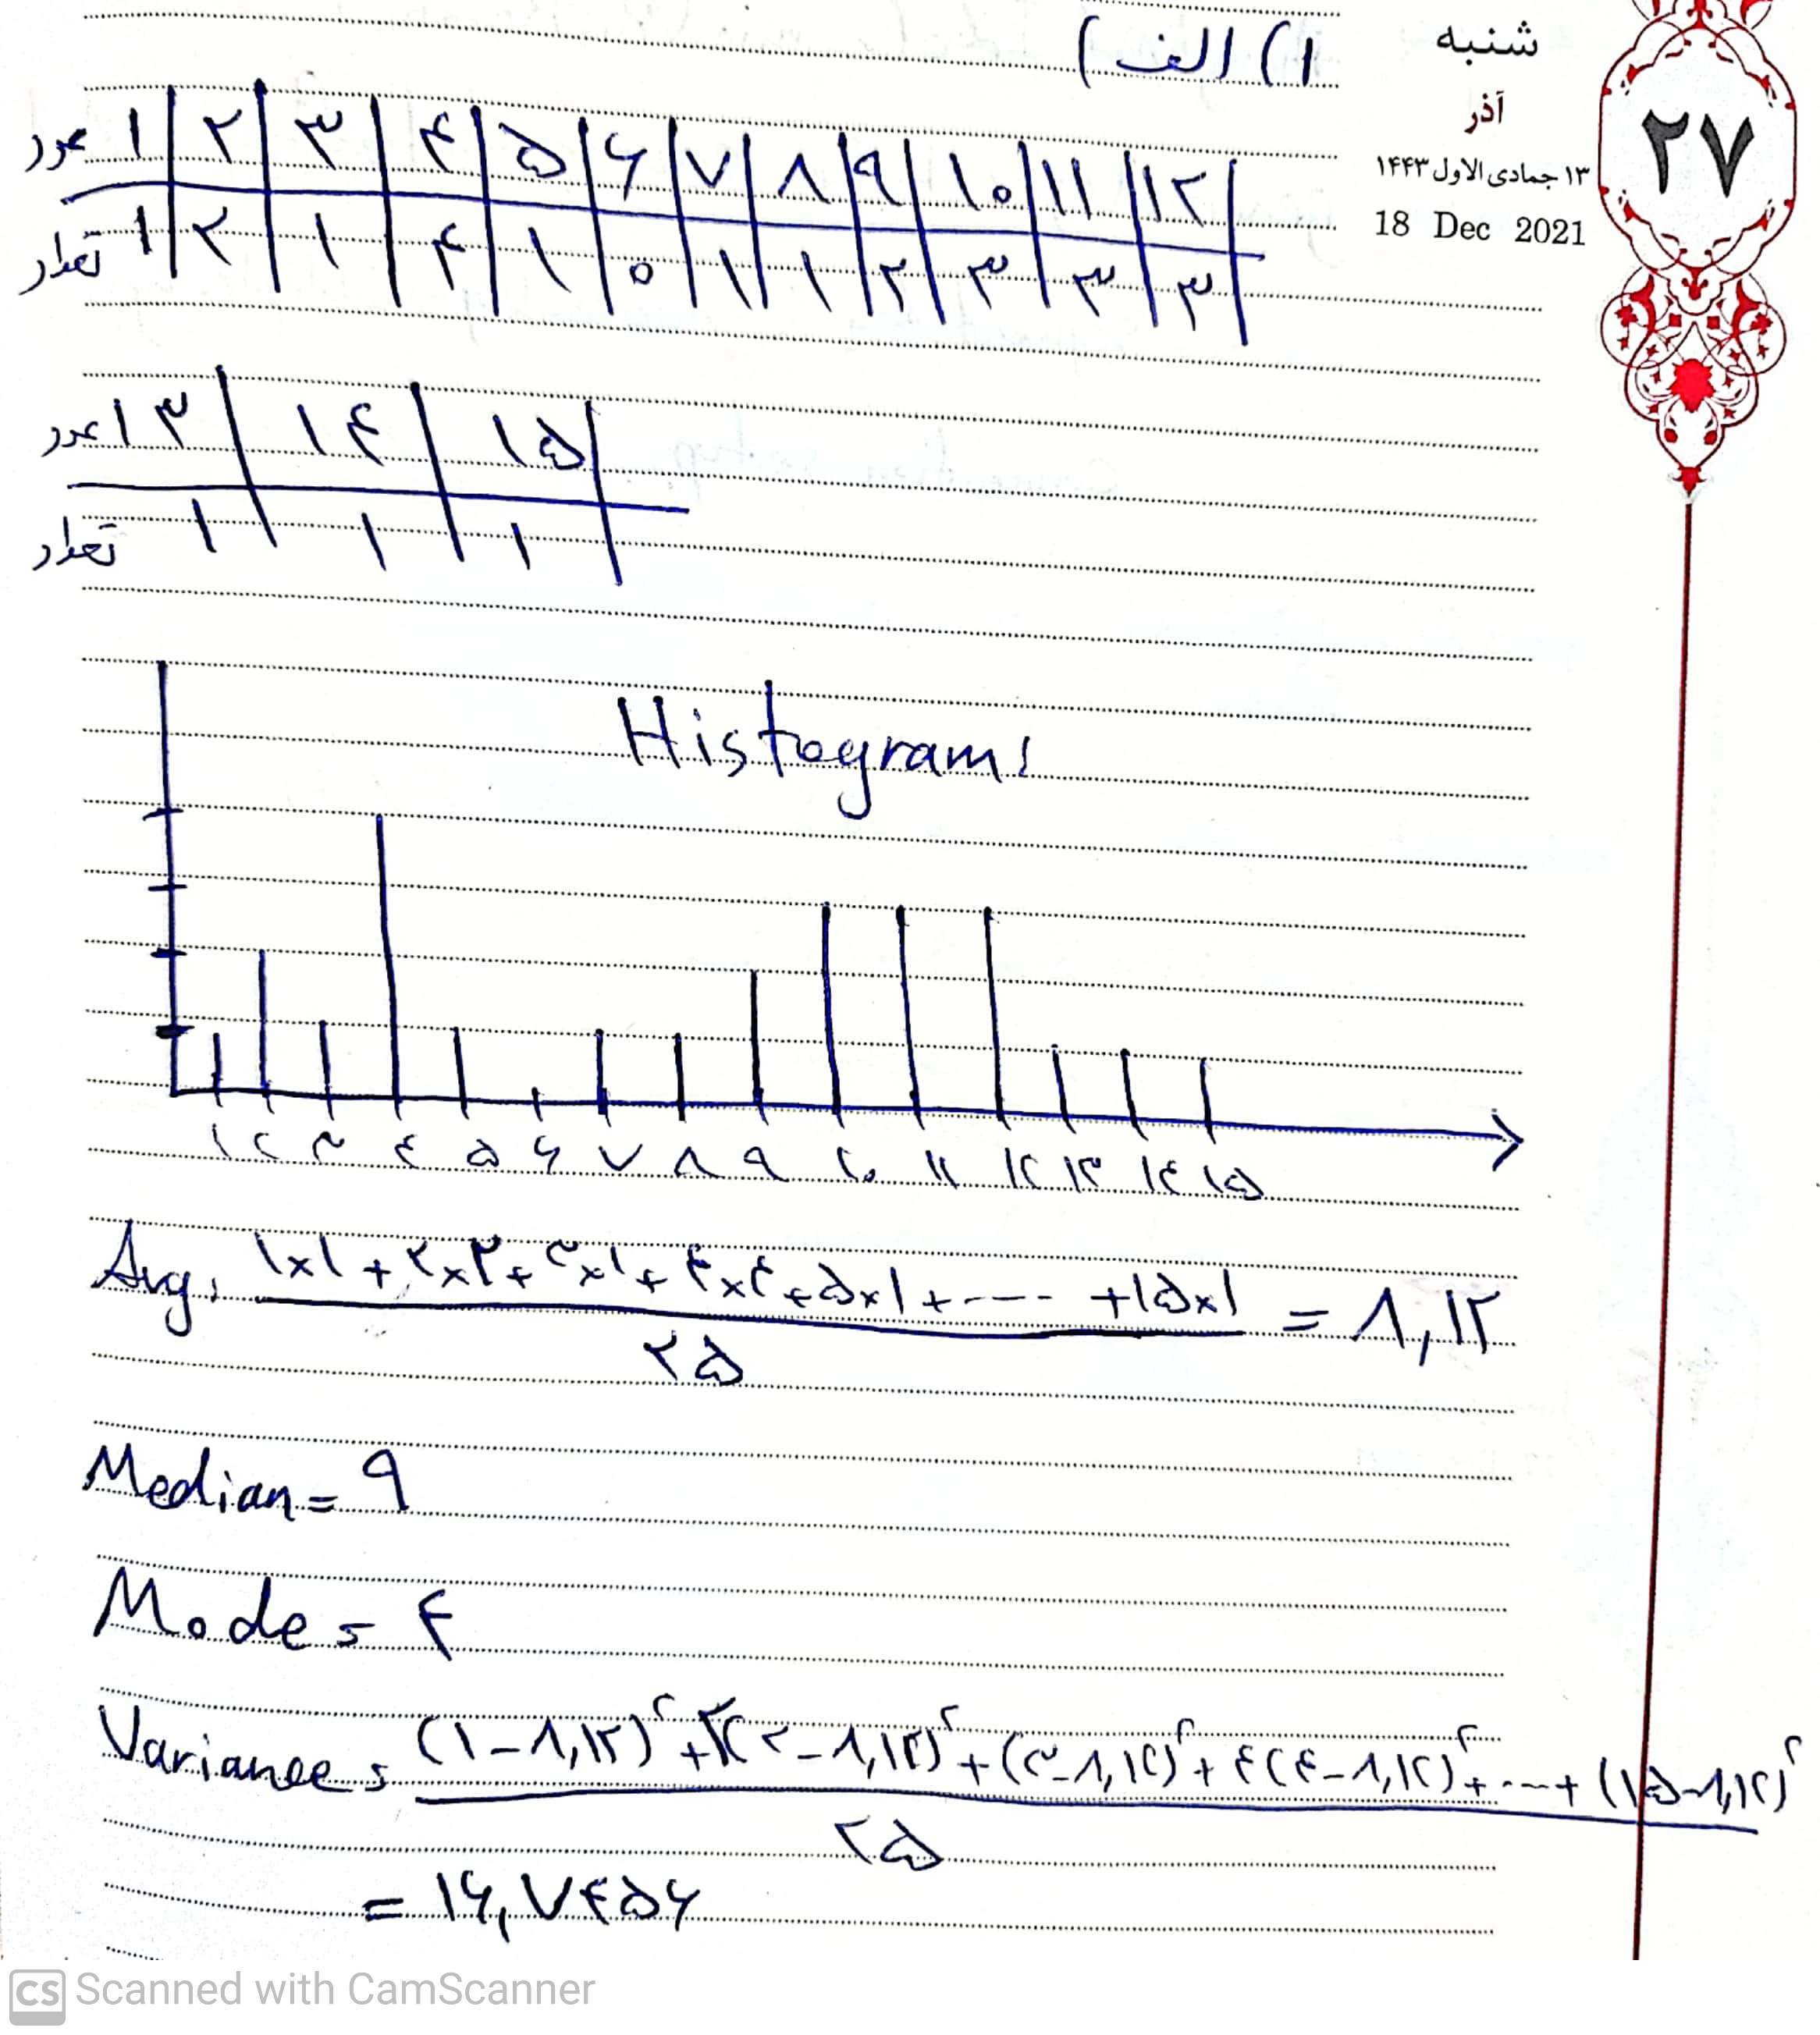 شنبه
آذر
۱۳ جمادی الاول ۱۴۴۳
18 Dec 2021
۲۷
۱) الف)
عدد ۱ ۲ ۳ ۴ ۵ ۶ ۷ ۸ ۹ ۱۰ ۱۱ ۱۲
تعداد ۱ ۲ ۱ ۴ ۱ ۰ ۱ ۱ ۲ ۳ ۳ ۳
عدد ۱۳ ۱۴ ۱۵
تعداد ۱ ۱ ۱
Histogram:
۱ ۲ ۳ ۴ ۵ ۶ ۷ ۸ ۹ ۱۰ ۱۱ ۱۲ ۱۳ ۱۴ ۱۵
Avg: ۱×۱ + ۲×۲ + ۳×۱ + ۴×۴ + ۵×۱ + ---- + ۱۵×۱ = ۸,۱۲
۲۵
Median = ۹
Mode = ۴
Variance = (۱-۸,۱۲)² + ۲(۲-۸,۱۲)² + (۳-۸,۱۲)² + ۴(۴-۸,۱۲)² + ---+ (۱۵-۸,۱۲)²
۲۵
= ۱۶,۷۴۵۶
CS Scanned with CamScanner